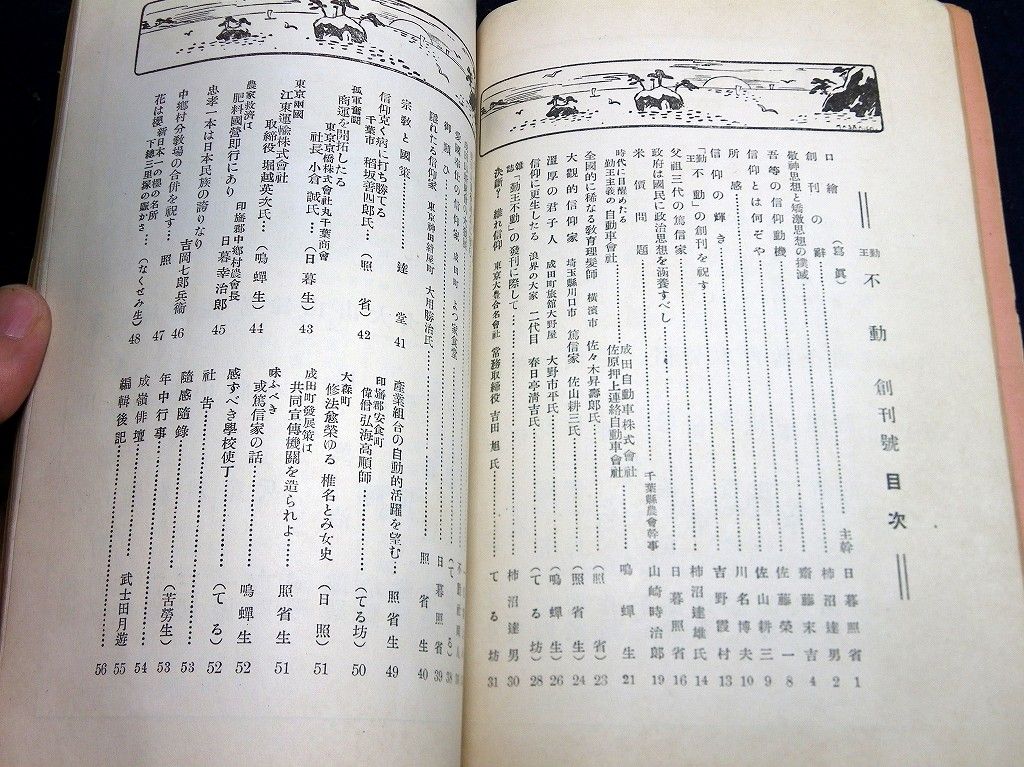 勤王 不動 創刊號 目次
口繪(寫眞)
創刊の辭 主幹 日暮照省 1
敬神思想と矯激思想の撲滅 柿沼達男 2
吾等の信仰動機 齋藤末吉 4
信仰とは何ぞや 佐藤榮一 8
所感 佐山耕三 9
信仰の輝き 川名博夫 10
「勤王不動」の創刊を祝す 吉野霞村 13
父祖三代の篤信家 柿沼達雄氏 14
政府は國民に政治思想を涵養すべし 日暮照省 16
米價問題 千葉縣農會幹事 山崎時治郎 19
時代に目醒めたる勤王主義の自動車會社 成田自動車株式會社 佐原押上連絡自動車會社 鳴蟬生 21
全國的に稀なる敎育理髮師 橫濱市 佐々木昇壽郎氏 (照省) 23
大觀的信仰家 埼玉縣川口市 篤信家 佐山耕三氏 (照省生) 24
溫厚の君子人 成田町旅舘大野屋 大野市平氏 (鳴蟬生) 26
信仰に更生したる 浪界の大家 二代目 春日亭清吉氏 (てる坊) 28
雜誌「勤王不動」の發刊に際して 柿沼達男 30
決斷?維れ信仰 東京大豊合名會社 常務取締役 吉田旭氏 てる坊 31
成田町 よつ家食堂 (てる) 38
御題ひ 日暮照省 39
隱れ仁と信仰家 東京神田紺屋町 大用勝治氏 照省生 40
宗敎と國策 達堂 41
信仰克く病に打ち勝てる 千葉市 稻坂善四郎氏 (照省) 42
孤軍奮鬪 商運を開拓したる 東京京橋株式會社丸千葉商會 社長 小倉誠氏 (日暮生) 43
東京兩國 江東運輸株式會社 取締役 堀越英次氏 (鳴蟬生) 44
農家救濟は 肥料國營卽行にあり 印旛郡中鄕村農會長 日暮幸治郎 45
忠孝一本は日本民族の誇りなり 吉岡七郎兵衞 46
中鄕村分敎場の合併を祝す 照 47
花は櫻、新日本一の櫻の名所 下總三里塚の賑かさ (なくせみ生) 48
產業組合の自動的活躍を望む 照省生 49
印旛郡安食町 偉僧弘海高順師 (てる坊) 50
大森町 修法愈榮ゆる 椎名とみ女史 (日照) 51
成田町發展策は 共同宣傳機關を造られよ 照省生 51
味ふべき 或篤信家の話 鳴蟬生 52
感ずべき學校使丁 (てる) 52
社告 53
隨感隨錄 (苦勞生) 53
年中行事 54
成嶺俳壇 武士田月遊 55
編輯後記 56